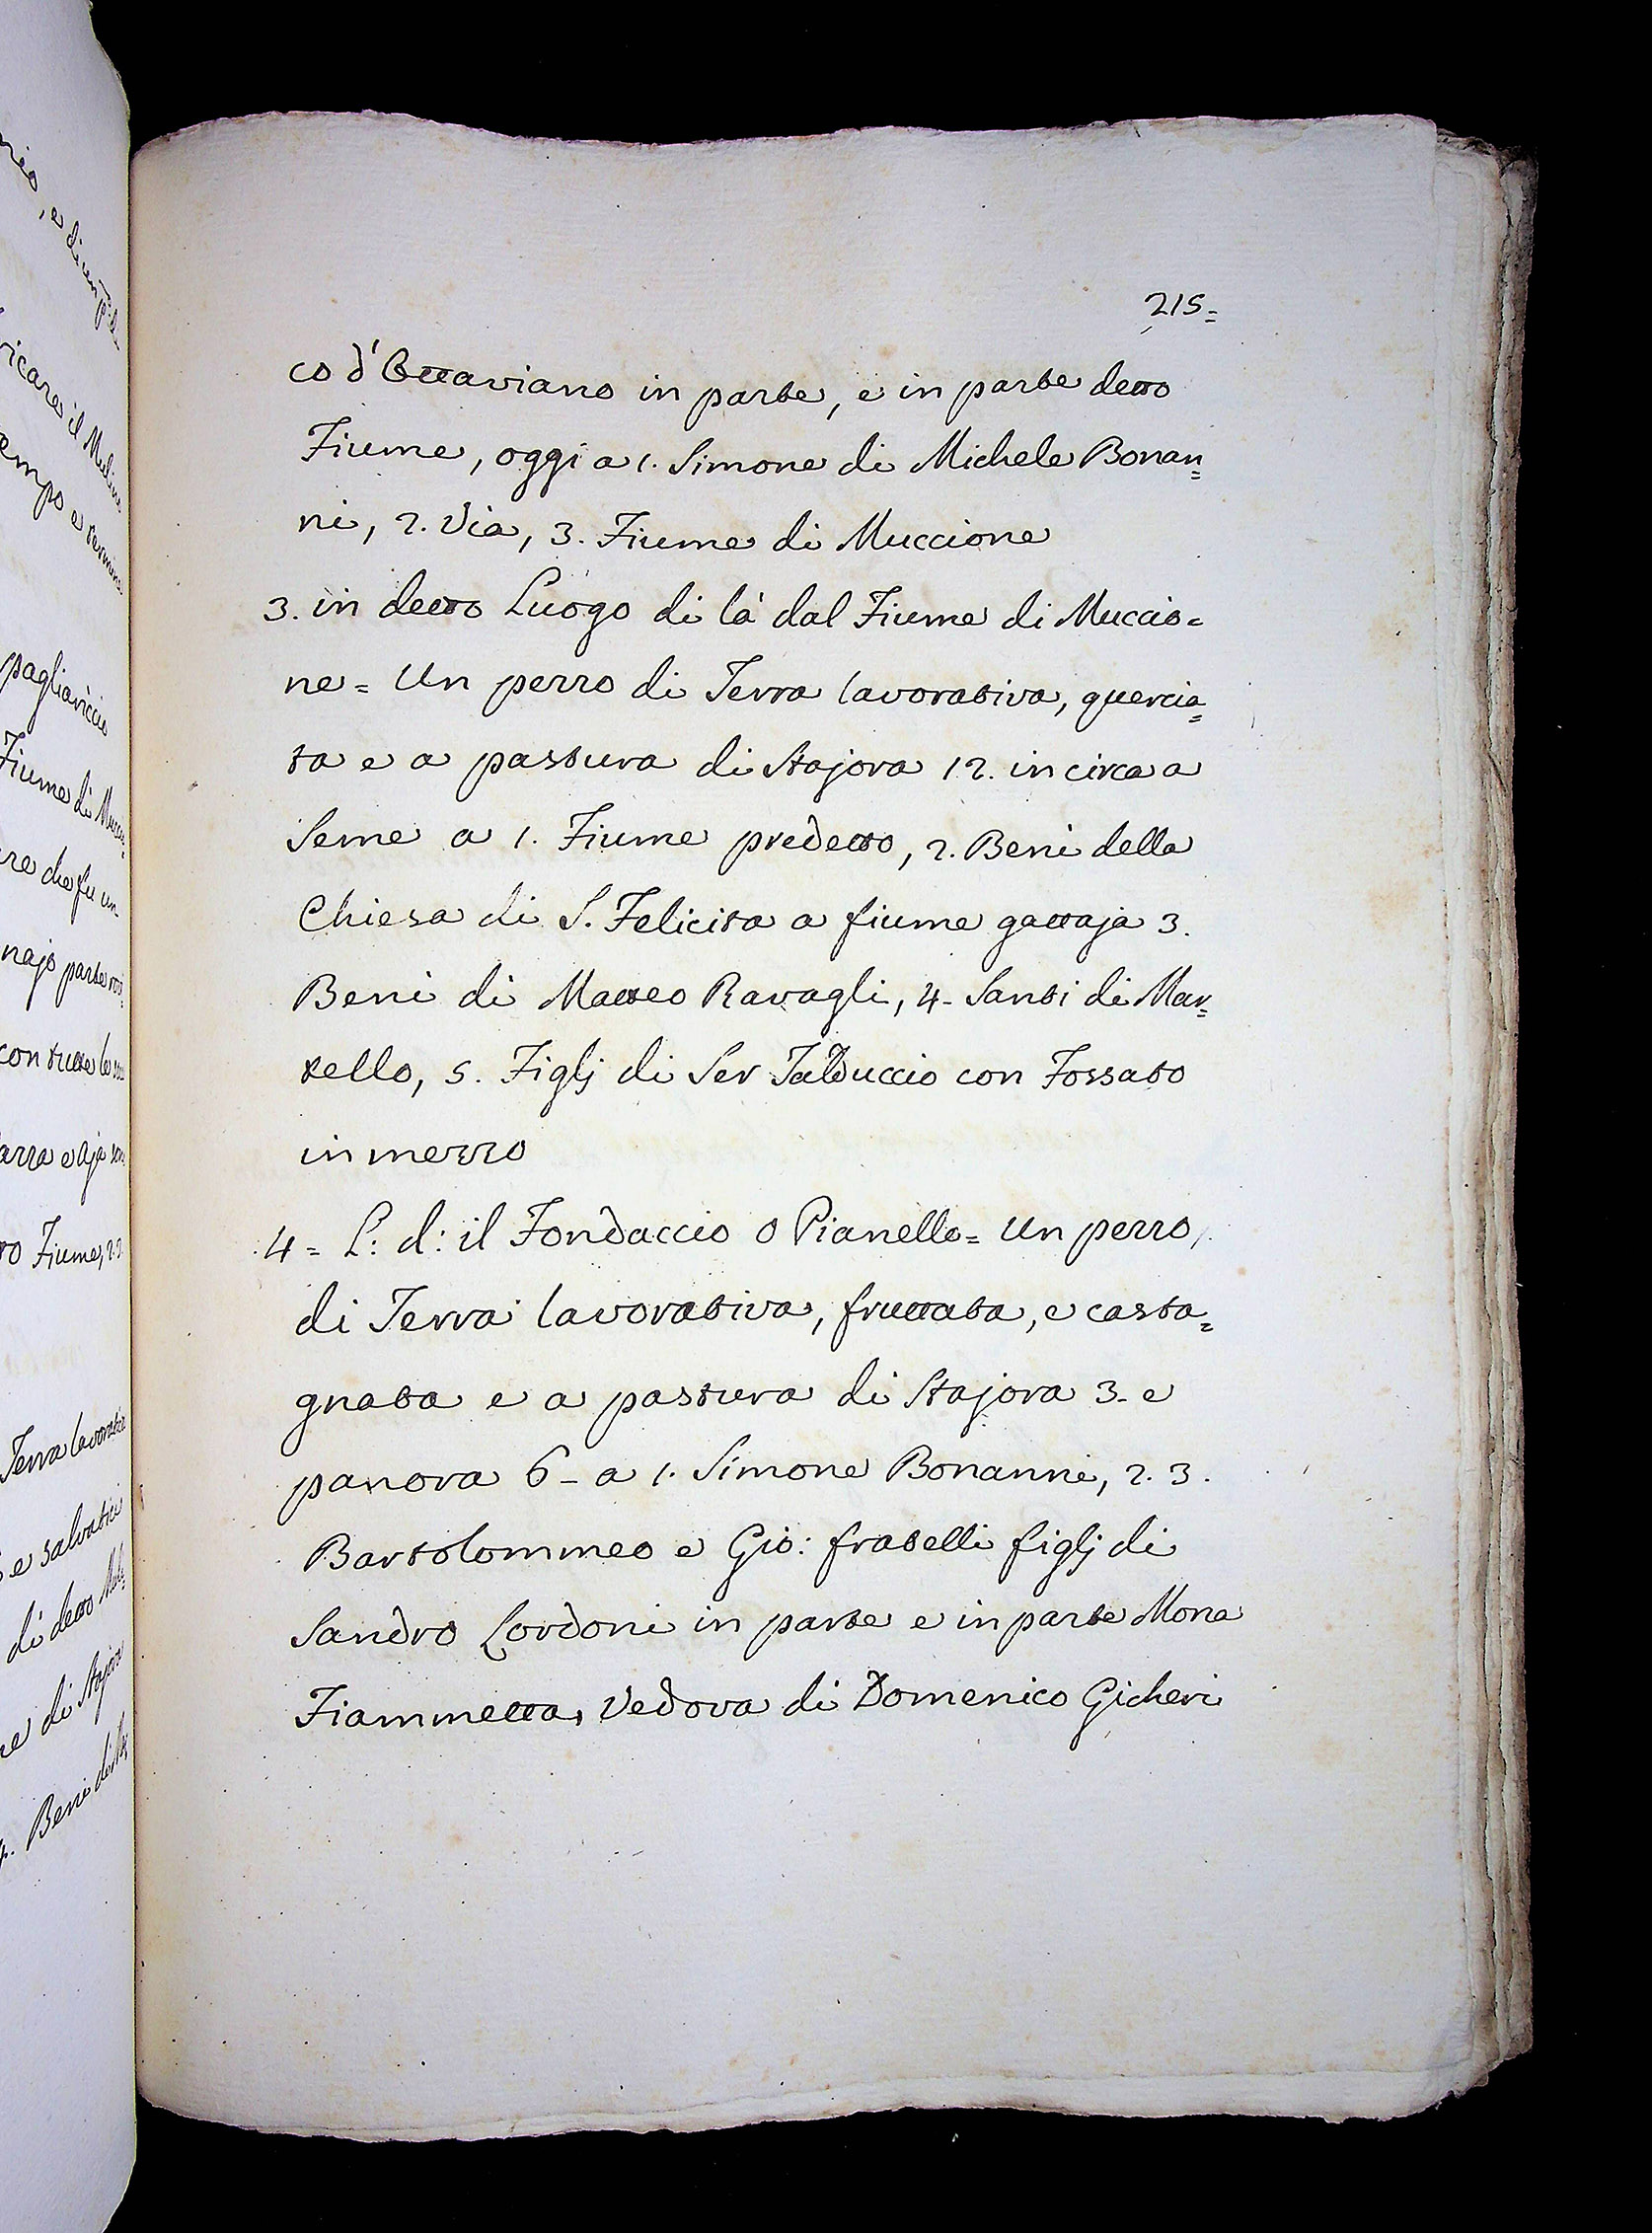 215=
co d'Ottaviano in parte, e in parte detto
Fiume, oggi a 1. Simone di Michele Bonan=
ni, 2. Via, 3. Fiume di Muccione
3. in detto Luogo di là dal Fiume di Muccio=
ne = Un pezzo di Terra lavorativa, quercia=
ta e a pastura di Stajora 12. in circa a
Seme a 1. Fiume predetto, 2. Beni della
Chiesa di S. Felicita a fiume gattaja 3.
Beni di Matteo Ravagli, 4- Santi di Mar=
tello, 5. Figlj di Ser Talduccio con Fossato
in mezzo
4 = L: d: il Fondaccio o Pianello = Un pezzo
di Terra lavorativa, fruttata, e casta=
gnata e a pastura di Stajora 3- e
panora 6- a 1. Simone Bonanni, 2. 3.
Bartolommeo e Gio: fratelli figlj di
Sandro Lordoni in parte e in parte Mona
Fiammetta, Vedova di Domenico Gicheri